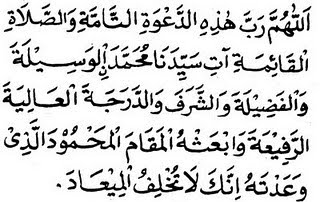 اَللّٰهُمَّ رَبَّ هٰذِهِ الدَّعْوَةِ التَّامَّةِ وَالصَّلَاةِ
الْقَائِمَةِ آتِ سَيِّدَنَا مُحَمَّدَاۨلْوَسِيْلَةَ
وَالْفَضِيْلَةَ وَالشَّرَفَ وَالدَّرَجَةَ الْعَالِيَةَ
الرَّفِيْعَةَ وَابْعَثْهُ الْمَقَامَ الْمَحْمُوْدَالَّذِىْ
وَعَدْتَهُ اِنَّكَ لَا تُخْلِفُ الْمِيْعَادَ.